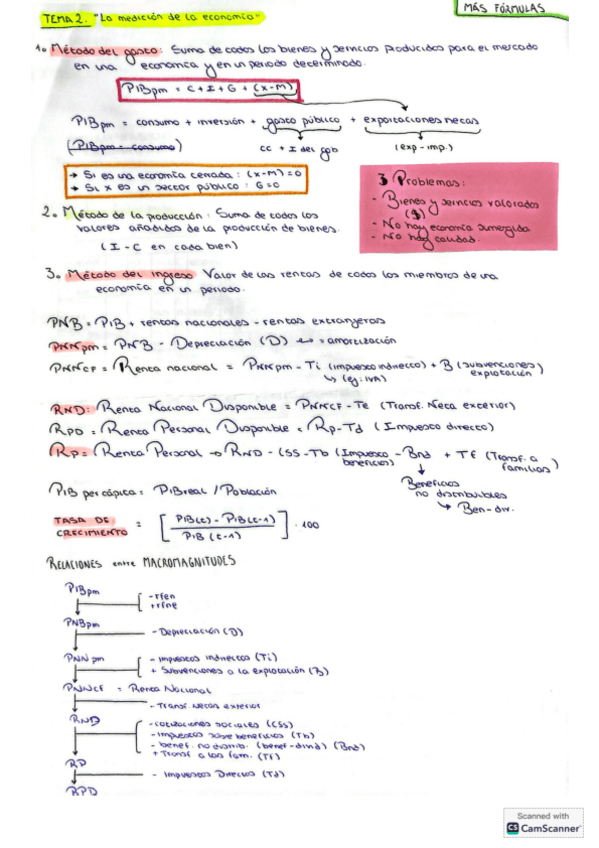 TEMA 2. "La medición de la economía"
MÁS FÓRMULAS
1. Método del gasto: Suma de todos los bienes y servicios producidos para el mercado
en una economía y en un periodo determinado.
PIBpm = C + I + G + (X-M)
PIBpm = consumo + inversión + gasto público + exportaciones netas
(PIBpm = consumo)
CC + I del gob
(exp - imp.)
→ Si es una economía cerrada : (X-M) = 0
→ Si X es un sector público : G=0
3 Problemas:
- Bienes y servicios valorados
($)
- No hay economía sumergida
- No hay calidad.
2. Método de la producción: Suma de todos los
valores añadidos de la producción de bienes.
(I - C en cada bien)
3. Método del ingreso Valor de las rentas de todos los miembros de una
economía en un periodo.
PNB = PIB + rentas nacionales - rentas extranjeras
PNNpm = PNB - Depreciación (D) ↔ amortización
PNNCF = Renta nacional = PNNpm - Ti (impuesto indirecto) + B (subvenciones)
explotación
↳ (ej: IVA)
RND: Renta Nacional Disponible = PNNCF - Te (Transf. Neta exterior)
RPD = Renta Personal Disponible = Rp - Td (Impuesto directo)
Rp = Renta Personal → RND - CSS - Tb (Impuesto - Bnd + Tf (Transf. a
beneficios) familias)
Beneficios
no distribuibles
↳ Ben - div.
PIB per cápita = PIB real / Población
TASA DE CRECIMIENTO = [ PIB(t) - PIB(t-1) / PIB (t-1) ] · 100
RELACIONES entre MACROMAGNITUDES
PIBpm
- rfen
+ rfne
PNBpm
- Depreciación (D)
PNNpm
- Impuestos indirectos (Ti)
+ Subvenciones a la explotación (B)
PNNCF = Renta Nacional
- Transf. Netas exterior
RND
- cotizaciones sociales (CSS)
- impuestos sobre beneficios (Tb)
- benef. no distrib. (benef - divid) (Bnd)
+ Transf a las fam. (Tf)
RP
- Impuestos Directos (Td)
RPD
Scanned with
CS CamScanner